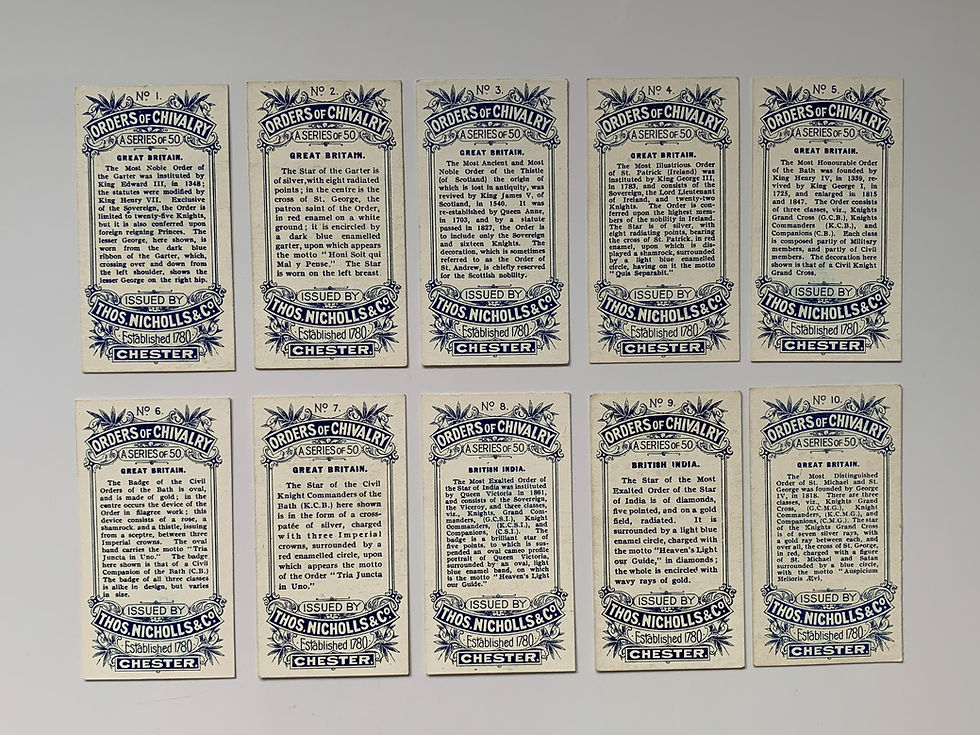 No 1.
ORDERS OF CHIVALRY
A SERIES OF 50.
GREAT BRITAIN.
The Most Noble Order of
the Garter was instituted by
King Edward III, in 1348;
the statutes were modified by
King Henry VII. Exclusive
of the Sovereign, the Order is
limited to twenty-five Knights,
but it is also conferred upon
foreign reigning Princes. The
lesser George, here shown, is
worn from the dark blue
ribbon of the Garter, which,
crossing over and down from
the left shoulder, shows the
lesser George on the right hip.
ISSUED BY
THOS. NICHOLLS & Co.
Established 1780.
CHESTER.
No 2.
ORDERS OF CHIVALRY
A SERIES OF 50.
GREAT BRITAIN.
The Star of the Garter is
of silver, with eight radiated
points; in the centre is the
cross of St. George, the
patron saint of the Order,
in red enamel on a white
ground; it is encircled by
a dark blue enamelled
garter, upon which appears
the motto "Honi Soit qui
Mal y Pense." The Star
is worn on the left breast
ISSUED BY
THOS. NICHOLLS & Co.
Established 1780.
CHESTER.
No 3.
ORDERS OF CHIVALRY
A SERIES OF 50.
GREAT BRITAIN.
The Most Ancient and Most
Noble Order of the Thistle
(of Scotland) the origin of
which is lost in antiquity, was
revived by King James V, of
Scotland, in 1540. It was
re-established by Queen Anne,
in 1703, and by a statute
passed in 1827, the Order is
to include only the Sovereign
and sixteen Knights. The
decoration, which is sometimes
referred to as the Order of
St. Andrew, is chiefly reserved
for the Scottish nobility.
ISSUED BY
THOS. NICHOLLS & Co.
Established 1780.
CHESTER.
No 4.
ORDERS OF CHIVALRY
A SERIES OF 50.
GREAT BRITAIN.
The Most Illustrious Order
of St. Patrick (Ireland) was
instituted by King George III,
in 1783, and consists of the
Sovereign, the Lord Lieutenant
of Ireland, and twenty-two
Knights. The Order is con-
ferred upon the highest mem-
bers of the nobility in Ireland.
The Star is of silver, with
eight radiating points, bearing
the cross of St. Patrick, in red
enamel, upon which is dis-
played a shamrock, surrounded
by a light blue enamelled
circle, having on it the motto
"Quis Separabit."
ISSUED BY
THOS. NICHOLLS & Co.
Established 1780.
CHESTER.
No 5.
ORDERS OF CHIVALRY
A SERIES OF 50.
GREAT BRITAIN.
The Most Honourable Order
of the Bath was founded by
King Henry IV, in 1339, re-
vived by King George I, in
1725, and enlarged in 1815
and 1847. The Order consists
of three classes, viz., Knights
Grand Cross (G.C.B.), Knights
Commanders (K.C.B.), and
Companions (C.B.). Each class
is composed partly of Military
members, and partly of Civil
members. The decoration here
shown is that of a Civil Knight
Grand Cross.
ISSUED BY
THOS. NICHOLLS & Co.
Established 1780.
CHESTER.
No 6.
ORDERS OF CHIVALRY
A SERIES OF 50.
GREAT BRITAIN.
The Badge of the Civil
Orders of the Bath is oval,
and is made of gold; in the
centre occurs the device of the
Order in filagree work; this
device consists of a rose, a
shamrock, and a thistle, issuing
from a sceptre, between three
Imperial crowns. The oval
band carries the motto "Tria
Juncta in Uno." The badge
here shown is that of a Civil
Companion of the Bath (C.B.)
The badge of all three classes
is alike in design, but varies
in size.
ISSUED BY
THOS. NICHOLLS & Co.
Established 1780.
CHESTER.
No 7.
ORDERS OF CHIVALRY
A SERIES OF 50.
GREAT BRITAIN.
The Star of the Civil
Knight Commanders of the
Bath (K.C.B.) here shown
is in the form of a cross-
patée of silver, charged
with three Imperial
crowns, surrounded by a
red enamelled circle, upon
which appears the motto
of the Order "Tria Juncta
in Uno."
ISSUED BY
THOS. NICHOLLS & Co.
Established 1780.
CHESTER.
No 8.
ORDERS OF CHIVALRY
A SERIES OF 50.
BRITISH INDIA.
The Most Exalted Order of
the Star of India was instituted
by Queen Victoria in 1861,
and consists of the Sovereign,
the Viceroy, and three classes,
viz., Knights, Grand Com-
manders, (G.C.S.I.), Knight
Commanders, (K.C.S.I.), and
Companions, (C.S.I.). The
badge is a brilliant star of
five points, to which is sus-
pended an oval cameo profile
portrait of Queen Victoria,
surrounded by an oval, light
blue enamel band, on which
is the motto "Heaven's Light
our Guide."
ISSUED BY
THOS. NICHOLLS & Co.
Established 1780.
CHESTER.
No 9.
ORDERS OF CHIVALRY
A SERIES OF 50.
BRITISH INDIA.
The Star of the Most
Exalted Order of the Star
of India is of diamonds,
five pointed, and on a gold
field, radiated. It is
surrounded by a light blue
enamel circle, charged with
the motto "Heaven's Light
our Guide," in diamonds;
the whole is encircled with
wavy rays of gold.
ISSUED BY
THOS. NICHOLLS & Co.
Established 1780.
CHESTER.
No 10.
ORDERS OF CHIVALRY
A SERIES OF 50.
GREAT BRITAIN.
The Most Distinguished
Order of St. Michael and St.
George was founded by George
IV, in 1818. There are three
classes, viz., Knights Grand
Cross, (G.C.M.G.), Knight
Commanders, (K.C.M.G.), and
Companions, (C.M.G.). The star
of the Knights Grand Cross
is of seven silver rays, with
a gold ray between each, and
over all, the cross of St. George,
in red, charged with a figure
of St. Michael and Satan
surrounded by a blue circle,
with the motto "Auspicium
Melioris Ævi.
ISSUED BY
THOS. NICHOLLS & Co.
Established 1780.
CHESTER.